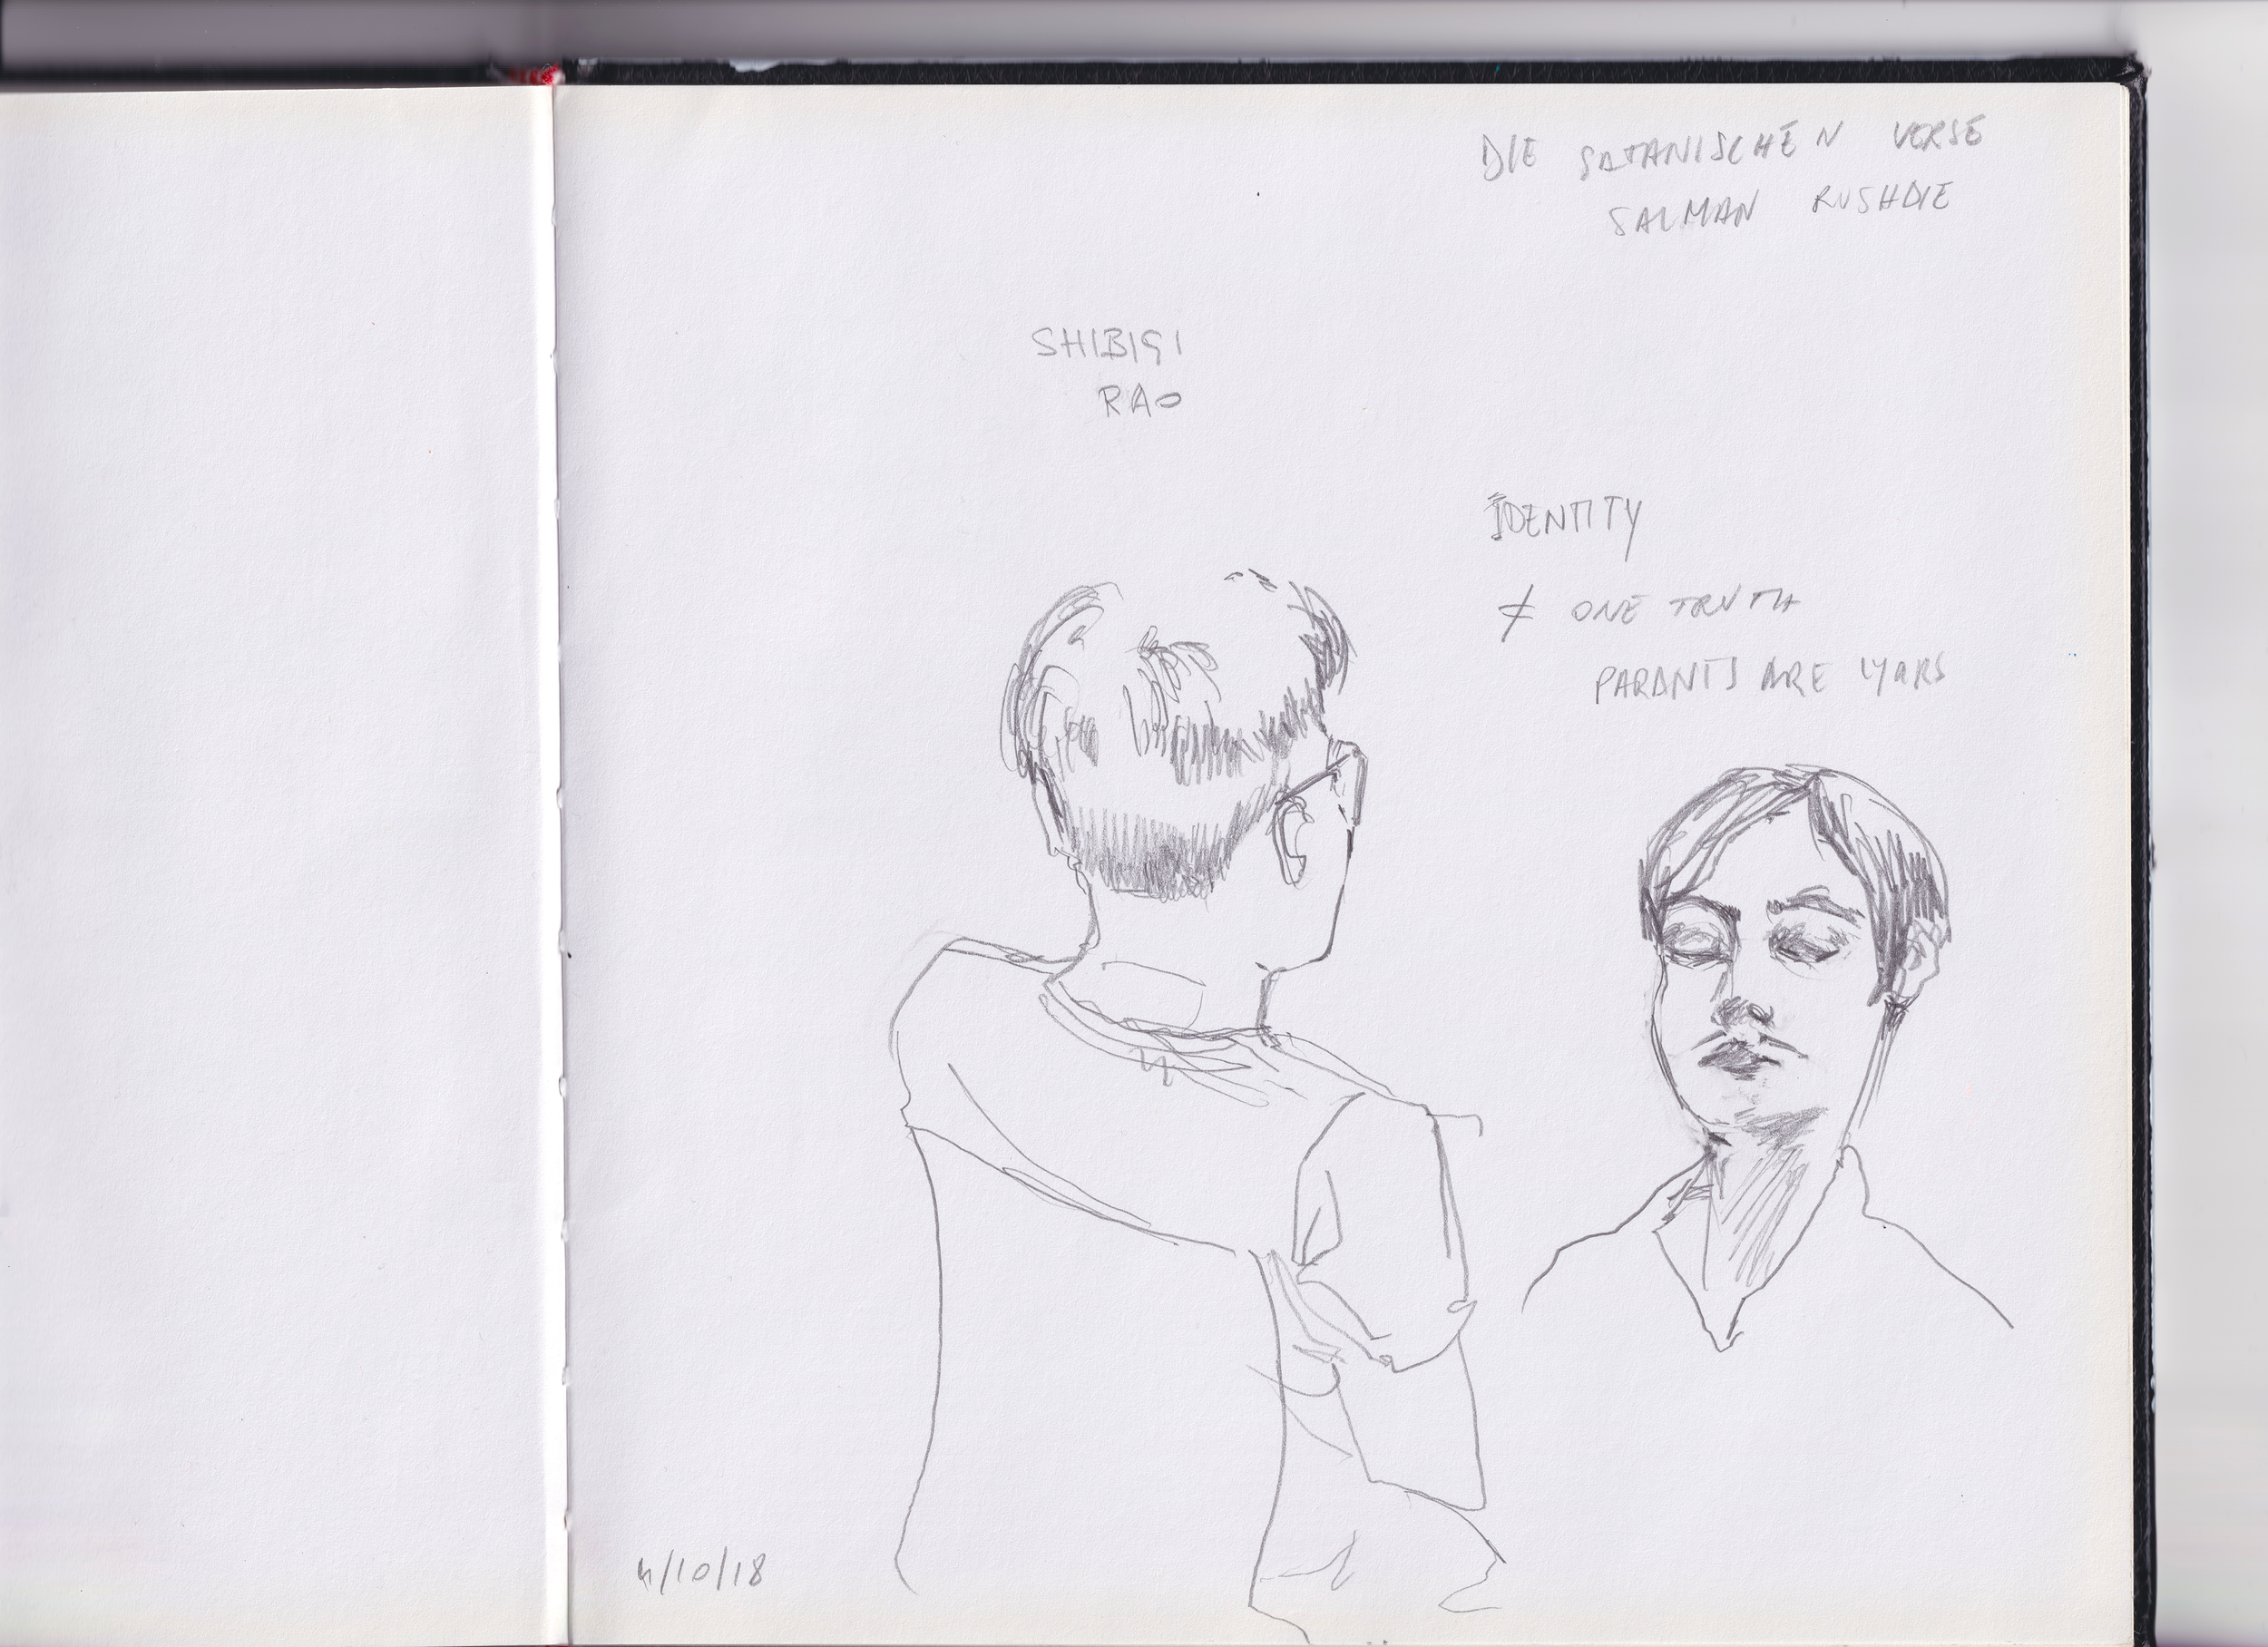 DIE SATANISCHEN VERSE
SALMAN RUSHDIE
SHIBIGI
RAO
IDENTITY
≠ ONE TRUTH
PARANTS ARE LYARS
4/10/18